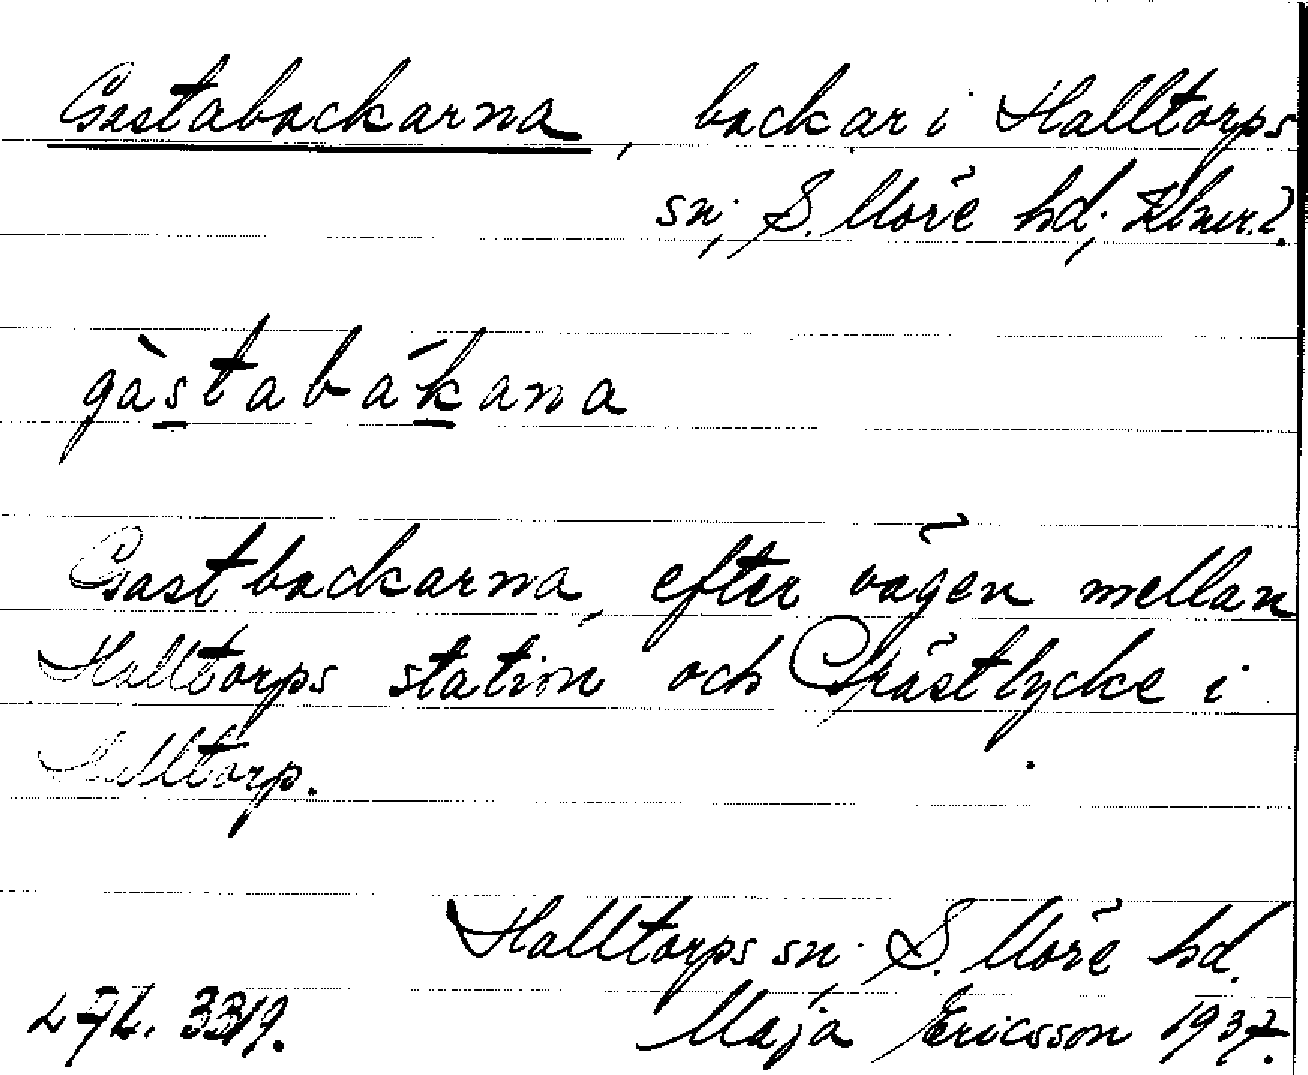 Gastabackarna, backar i Halltorps
sn; S. Möre hd;
gàstabákana
Gastbackarna, efter vägen mellan
Halltorps station och Prästlycke i
Halltorp.
Halltorps sn; S. Möre hd.
3319. Maja Ericsson 1937.